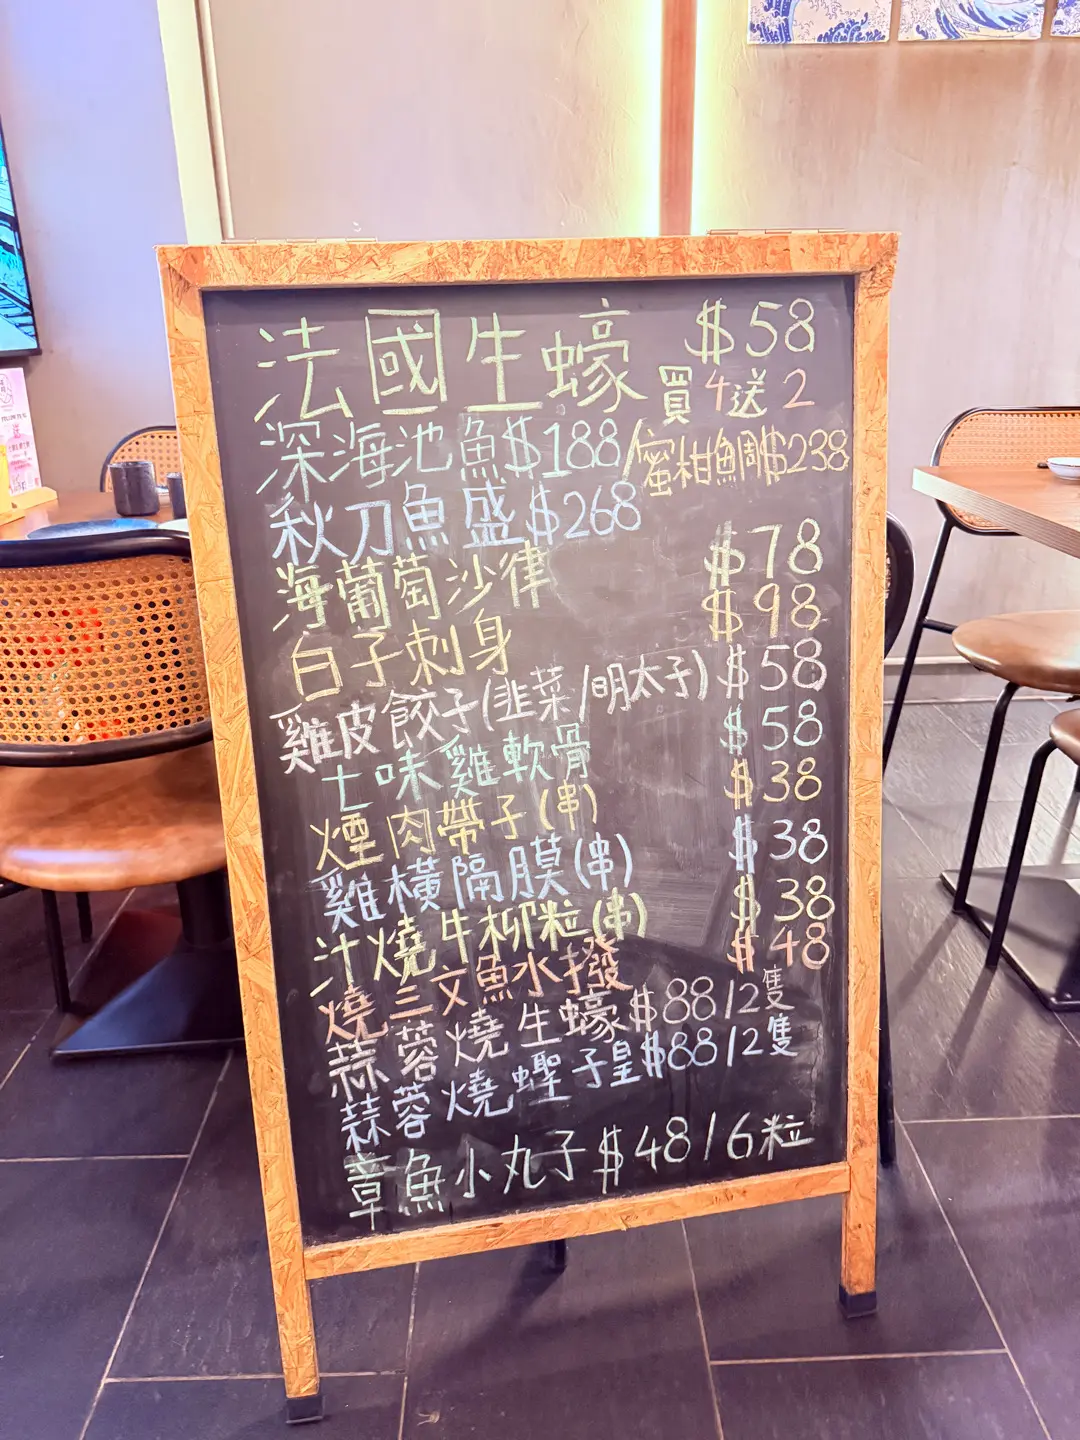 法國生蠔 $58
買4送2
深海池魚$188/蜜柑鯛$238
秋刀魚盛$268
海葡萄沙律 $78
白子刺身 $98
雞皮餃子(韮菜/明太子) $58
七味雞軟骨 $58
煙肉帶子(串) $38
雞橫隔膜(串) $38
汁燒牛柳粒(串) $38
燒三文魚水撥 $48
蒜蓉燒生蠔$88/2隻
蒜蓉燒蟶子皇$88/2隻
章魚小丸子$48/6粒